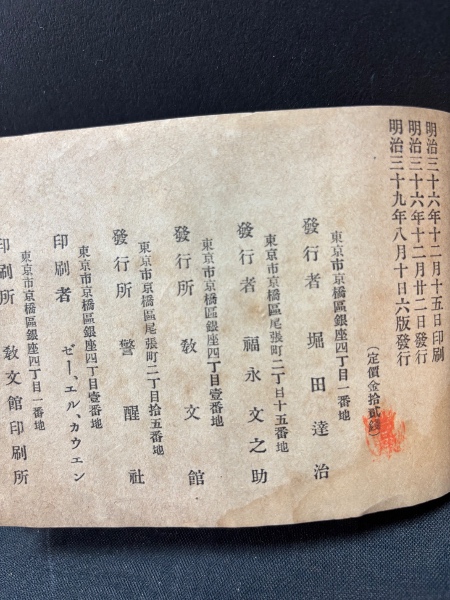 明治三十六年十二月十五日印刷
明治三十六年十二月廿二日發行
明治三十九年八月十日六版發行
(定價金拾貳錢)
東京市京橋區銀座四丁目一番地
發行者 堀田達治
東京市京橋區尾張町二丁目十五番地
發行者 福永文之助
東京市京橋區銀座四丁目壹番地
發行所 敎文館
東京市京橋區尾張町二丁目拾五番地
發行所 警醒社
東京市京橋區銀座四丁目壹番地
印刷者 ゼー、エル、カウエン
東京市京橋區銀座四丁目一番地
印刷所 敎文館印刷所